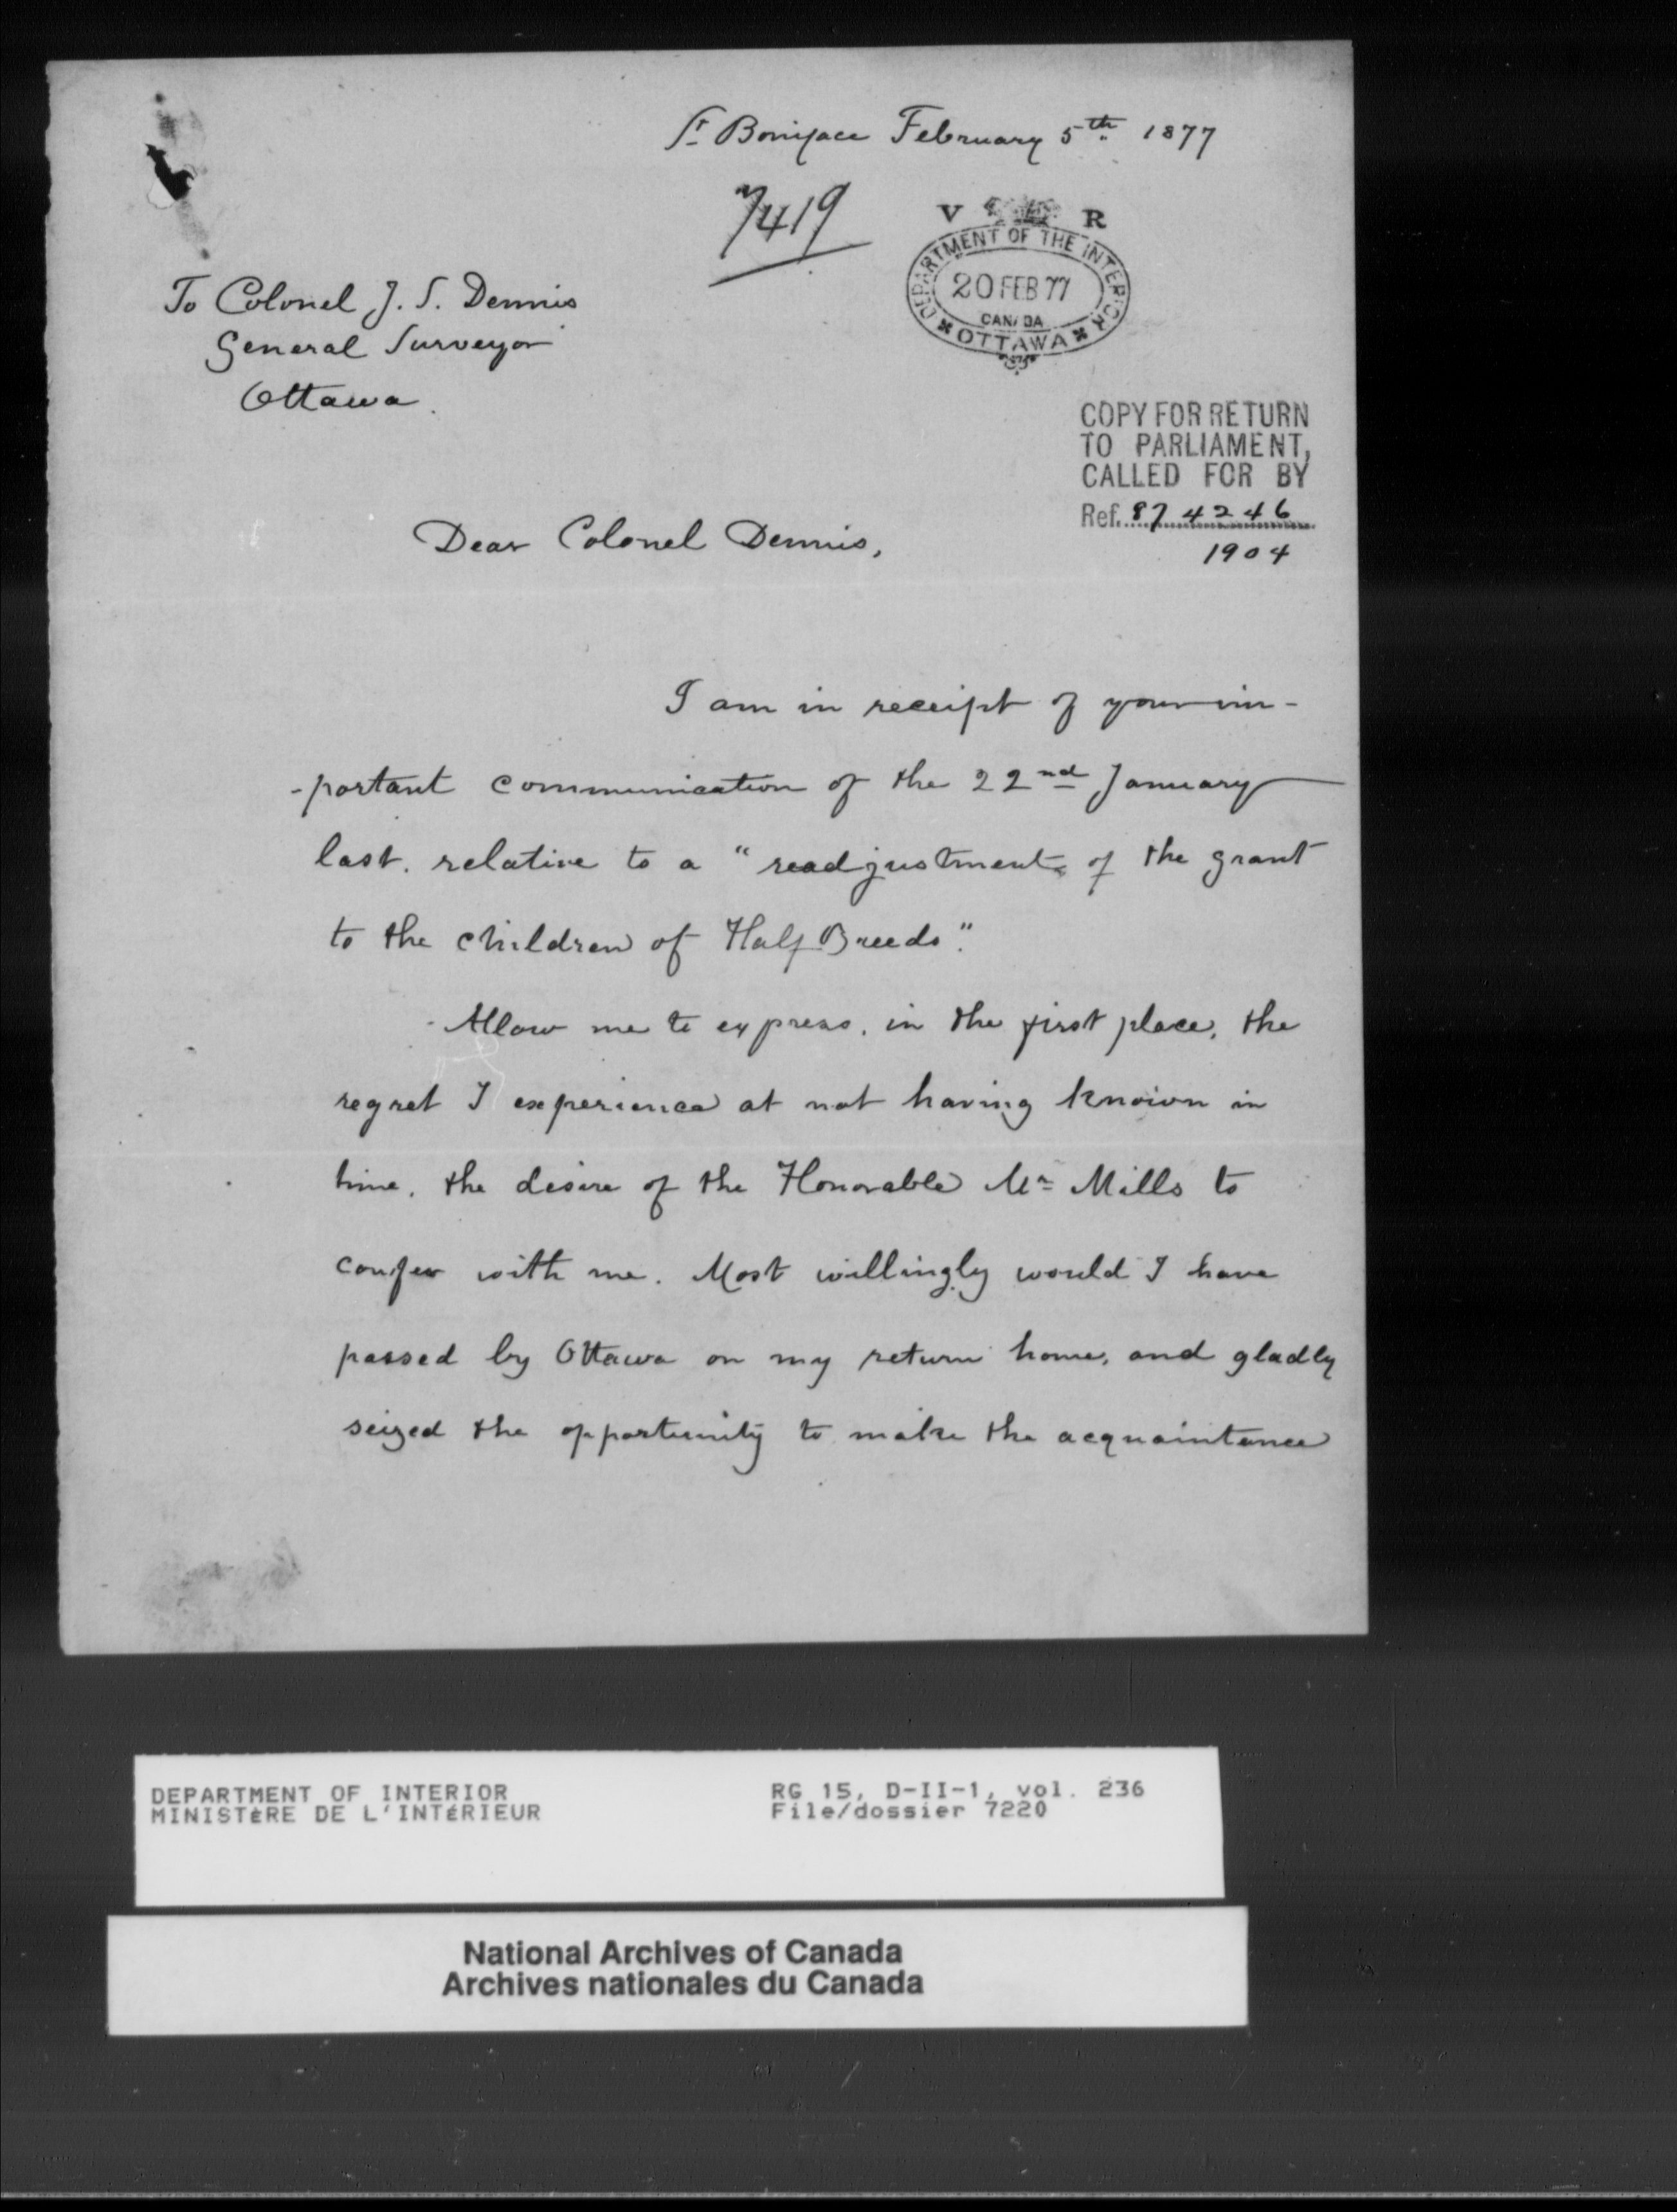 St Boniface February 5th 1877
7419
V R
DEPARTMENT OF THE INTERIOR
20 FEB 77
CANADA
OTTAWA
To Colonel J. S. Dennis
General Surveyor
Ottawa.
COPY FOR RETURN
TO PARLIAMENT,
CALLED FOR BY
Ref. 874246
1904
Dear Colonel Dennis,
I am in receipt of your im-
-portant communication of the 22nd January
last. relative to a "readjustment of the grant
to the children of Half Breeds".
Allow me to express, in the first place, the
regret I experience at not having known in
time, the desire of the Honorable Mr Mills to
confer with me. Most willingly would I have
passed by Ottawa on my return home, and gladly
seized the opportunity to make the acquaintance
DEPARTMENT OF INTERIOR
MINISTÈRE DE L'INTÉRIEUR
RG 15, D-II-1, vol. 236
File/dossier 7220
National Archives of Canada
Archives nationales du Canada